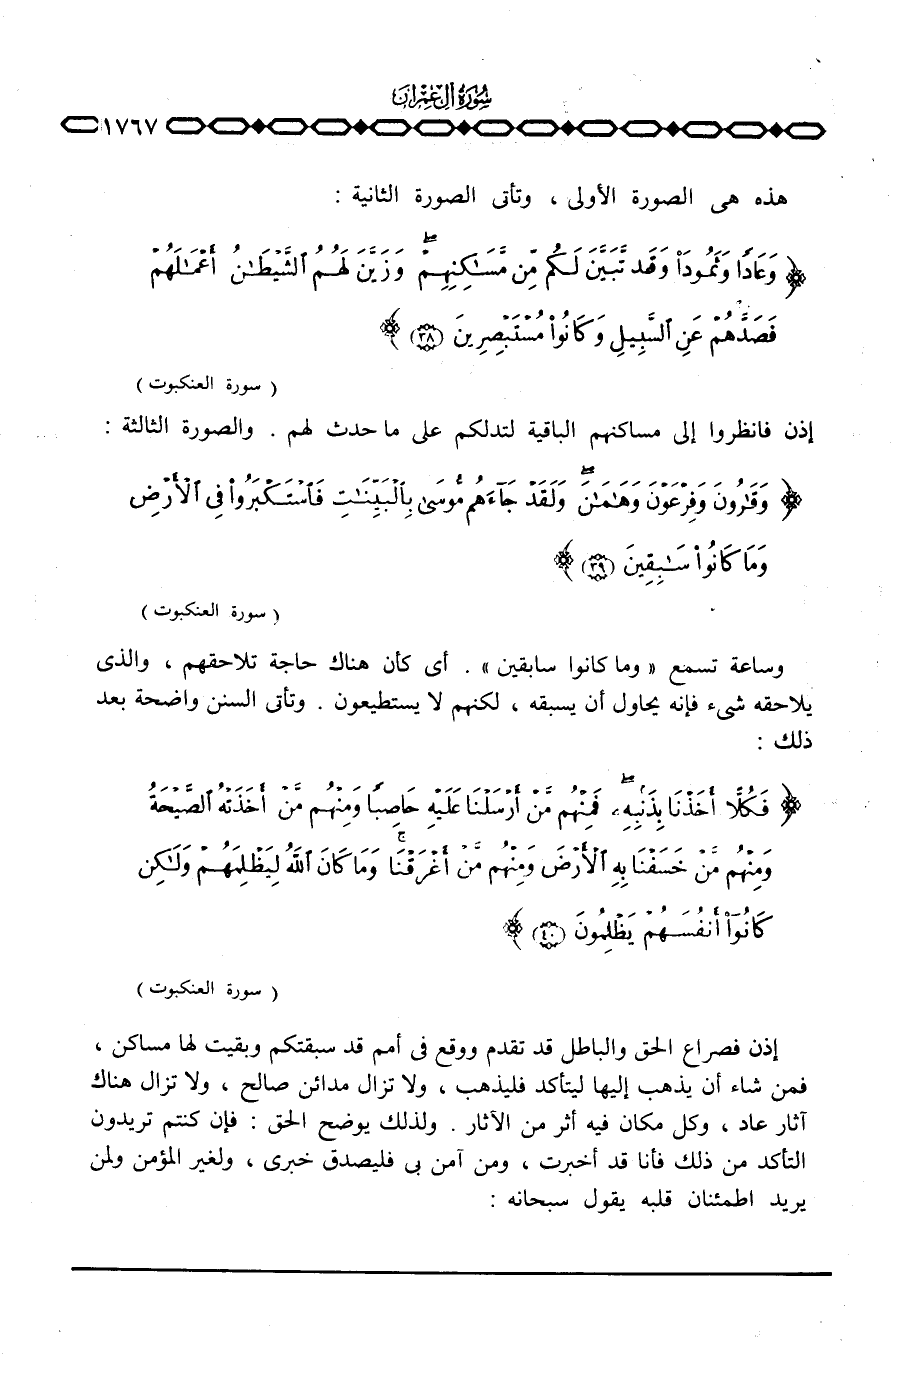 سُورَةُ آلِ عِمْرَانَ
١٧٦٧
هذه هى الصورة الأولى ، وتأتى الصورة الثانية :
﴿ وَعَادًا وَثَمُودَاْ وَقَد تَّبَيَّنَ لَكُم مِّن مَّسَـٰكِنِهِمْ ۖ وَزَيَّنَ لَهُمُ ٱلشَّيْطَـٰنُ أَعْمَـٰلَهُمْ
فَصَدَّهُمْ عَنِ ٱلسَّبِيلِ وَكَانُواْ مُسْتَبْصِرِينَ (٣٨) ﴾
( سورة العنكبوت )
إذن فانظروا إلى مساكنهم الباقية لتدلكم على ما حدث لهم . والصورة الثالثة :
﴿ وَقَـٰرُونَ وَفِرْعَوْنَ وَهَـٰمَـٰنَ ۖ وَلَقَدْ جَآءَهُم مُّوسَىٰ بِٱلْبَيِّنَـٰتِ فَٱسْتَكْبَرُواْ فِى ٱلْأَرْضِ
وَمَا كَانُواْ سَـٰبِقِينَ (٣٩) ﴾
( سورة العنكبوت )
وساعة تسمع « وما كانوا سابقين » . أى كأن هناك حاجة تلاحقهم ، والذى
يلاحقه شىء فإنه يحاول أن يسبقه ، لكنهم لا يستطيعون . وتأتى السنن واضحة بعد
ذلك :
﴿ فَكُلًّا أَخَذْنَا بِذَنۢبِهِۦ ۖ فَمِنْهُم مَّنْ أَرْسَلْنَا عَلَيْهِ حَاصِبًا وَمِنْهُم مَّنْ أَخَذَتْهُ ٱلصَّيْحَةُ
وَمِنْهُم مَّنْ خَسَفْنَا بِهِ ٱلْأَرْضَ وَمِنْهُم مَّنْ أَغْرَقْنَا ۚ وَمَا كَانَ ٱللَّهُ لِيَظْلِمَهُمْ وَلَـٰكِن
كَانُوٓاْ أَنفُسَهُمْ يَظْلِمُونَ (٤٠) ﴾
( سورة العنكبوت )
إذن فصراع الحق والباطل قد تقدم ووقع فى أمم قد سبقتكم وبقيت لها مساكن ،
فمن شاء أن يذهب إليها ليتأكد فليذهب ، ولا تزال مدائن صالح ، ولا تزال هناك
آثار عاد ، وكل مكان فيه أثر من الآثار . ولذلك يوضح الحق : فإن كنتم تريدون
التأكد من ذلك فأنا قد أخبرت ، ومن آمن بى فليصدق خبرى ، ولغير المؤمن ولمن
يريد اطمئنان قلبه يقول سبحانه :